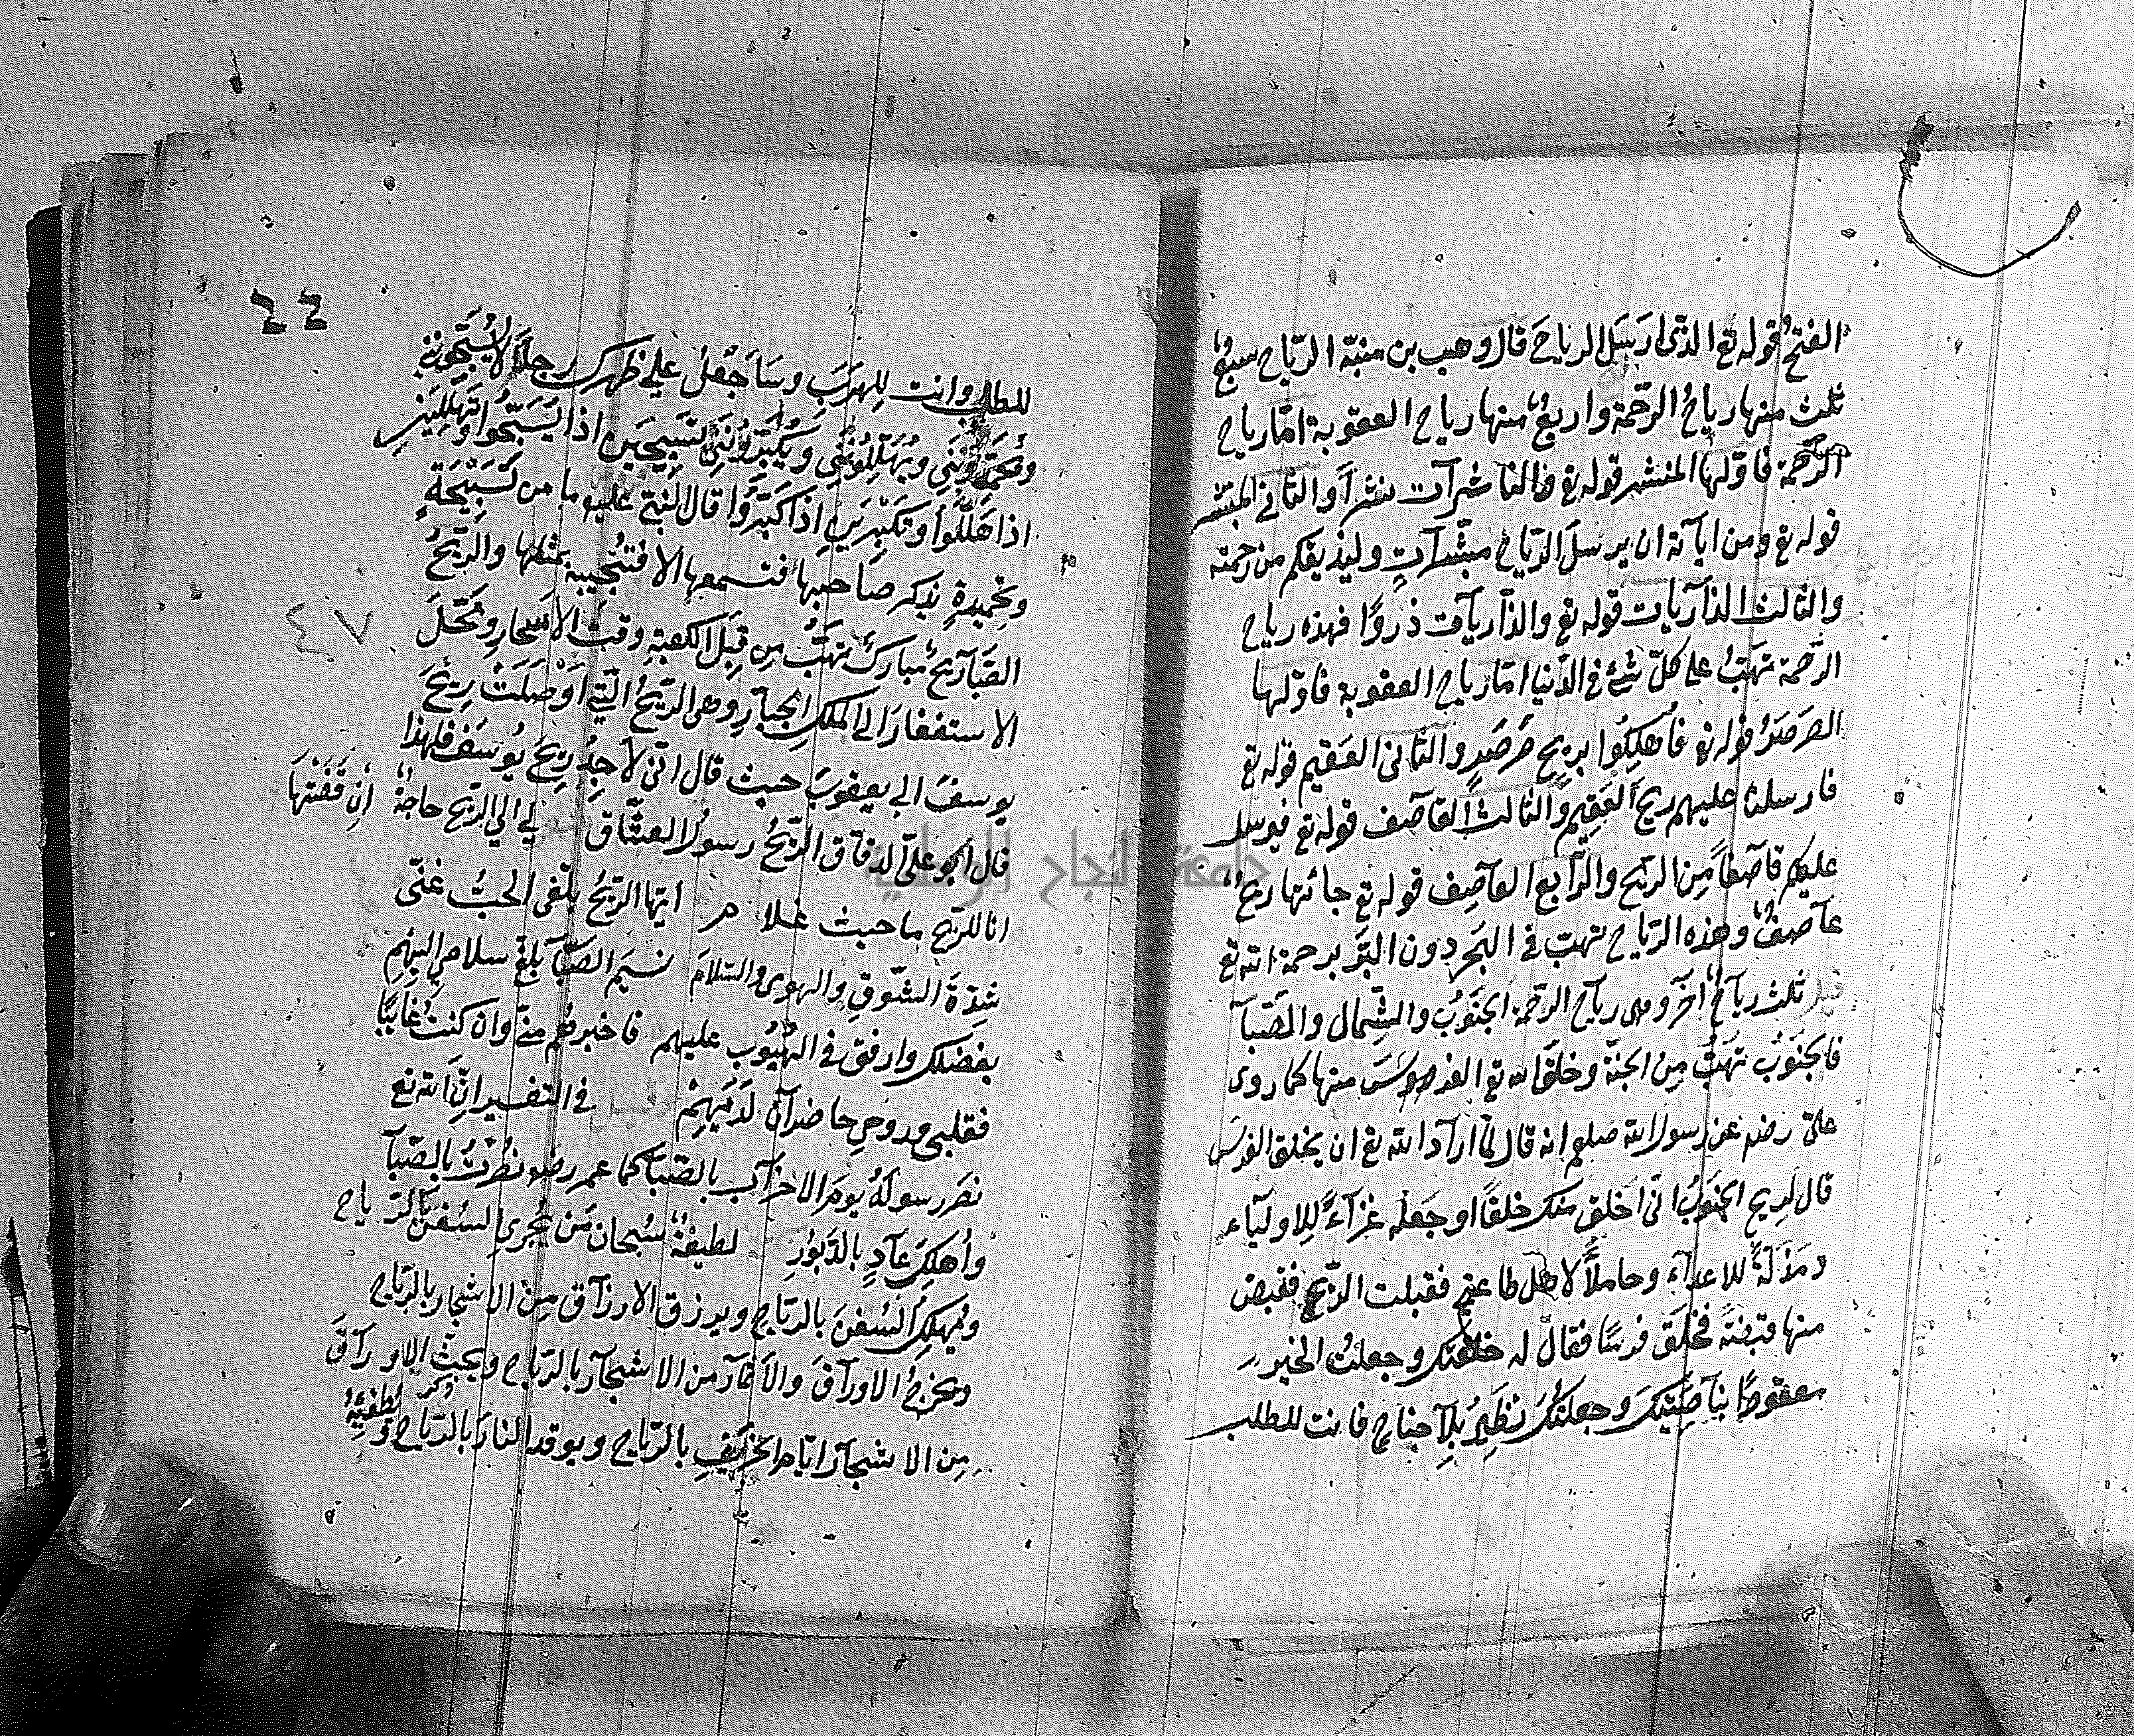 الفتح قوله تع الذى ارسل الرياح قال وهب بن منبه الرياح سبع
ثلث منها رياح الرحمة واربع منها رياح العقوبة امّا رياح
الرحمة فاولها المنشر قوله تع فالناشرات نشرا والثانى المبشر
قوله تع ومن اياته ان يرسل الرياح مبشرات وليذيقكم من رحمته
والثالث الذاريات قوله تع والذاريات ذروًا فهذه رياح
الرحمة تهب على كل شئ فى الدنيا امّا رياح العقوبة فاولها
الصرصر قوله تع فاهلكوا بريح صرصر والثانى العقيم قوله تع
فارسلنا عليهم ريح العقيم والثالث القاصف قوله تع فيرسل
عليكم قاصفًا من الريح والرابع العاصف قوله تع جائتها ريح
عاصف وهذه الرياح تهب فى البحر دون البر برحمة الله تع
ثلث رياح اخر وهى رياح الرحمة الجنوب والشمال والصبا
فالجنوب تهب من الجنة وخلق الله تع الفرس منها كما روى
على رضه عن رسول الله صلعم انه قال لمّا اراد الله تع ان يخلق الفرس
قال لريح الجنوب انى اخلق منك خلقًا اوجعله عزاءً للاولياء
ومذلةً للاعداء وحاملاً لاهل طاعتى فقبلت الريح فقبض
منها قبضة فخلق فرسًا فقال له خلقتك وجعلت الخير
معقودًا بناصيتك وجعلتك نظير بلا جناح فانت للطلب
٤٤
للمطلب وانت للهرب وساجعل على ظهرك رجلاً لا يسبحونى
ويحمدوننى ويهللوننى ويكبروننى تسبيحين اذا يسبحوا وتهللين
اذا هللوا وتكبرين اذا كبروا قال النبى عليه ما من تسبيحة
وتحميدة يذكر صاحبها فتسمعها الا فتجيبه بمثلها والريح
الصبا ريح مبارك تهب من قبل الكعبة وقت الاسحار وتحمل
٤٧
الاستغفار الى الملك الجبار وهى الريح التى اوصلت ريح
يوسف الى يعقوب حيث قال انى لاجد ريح يوسف فلهذا
قال ابو على الدقاق الريح رسول العشاق لى الى الريح حاجة ان قضتها
انا للريح ما حييت غلام ايها الريح بلغى الحب عنى
شدة الشوق والهوى والسلام نسيم الصبا بلغ سلامى اليهم
بفضلك وارفق فى الهبوب عليهم فاخبرهم منى وان كنت غائبا
فقلبى وروحى حاضران لديهم فى التفسير ان الله تع
نصر رسوله يوم الاحزاب بالصبا كما عمر رضه نصرت بالصبا
واهلك عاد بالدبور لطيفة سبحان من يجرى السفن بالرياح
ويهلك السفن بالرياح ويرزق الارزاق من الاشجار بالرياح
ويخرج الاوراق والاثمار من الاشجار بالرياح ويحث الاوراق
من الاشجار ايام الخريف بالرياح ويوقد النار بالرياح وتطفئه